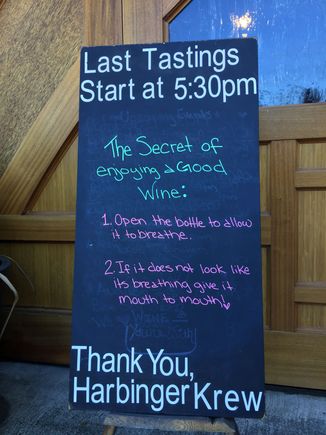 Last Tastings
Start at 5:30pm
The Secret of
enjoying a Good
Wine:
1. Open the bottle to allow
it to breathe.
2. If it does not look like
its breathing give it
mouth to mouth!
Thank You,
Harbinger Krew